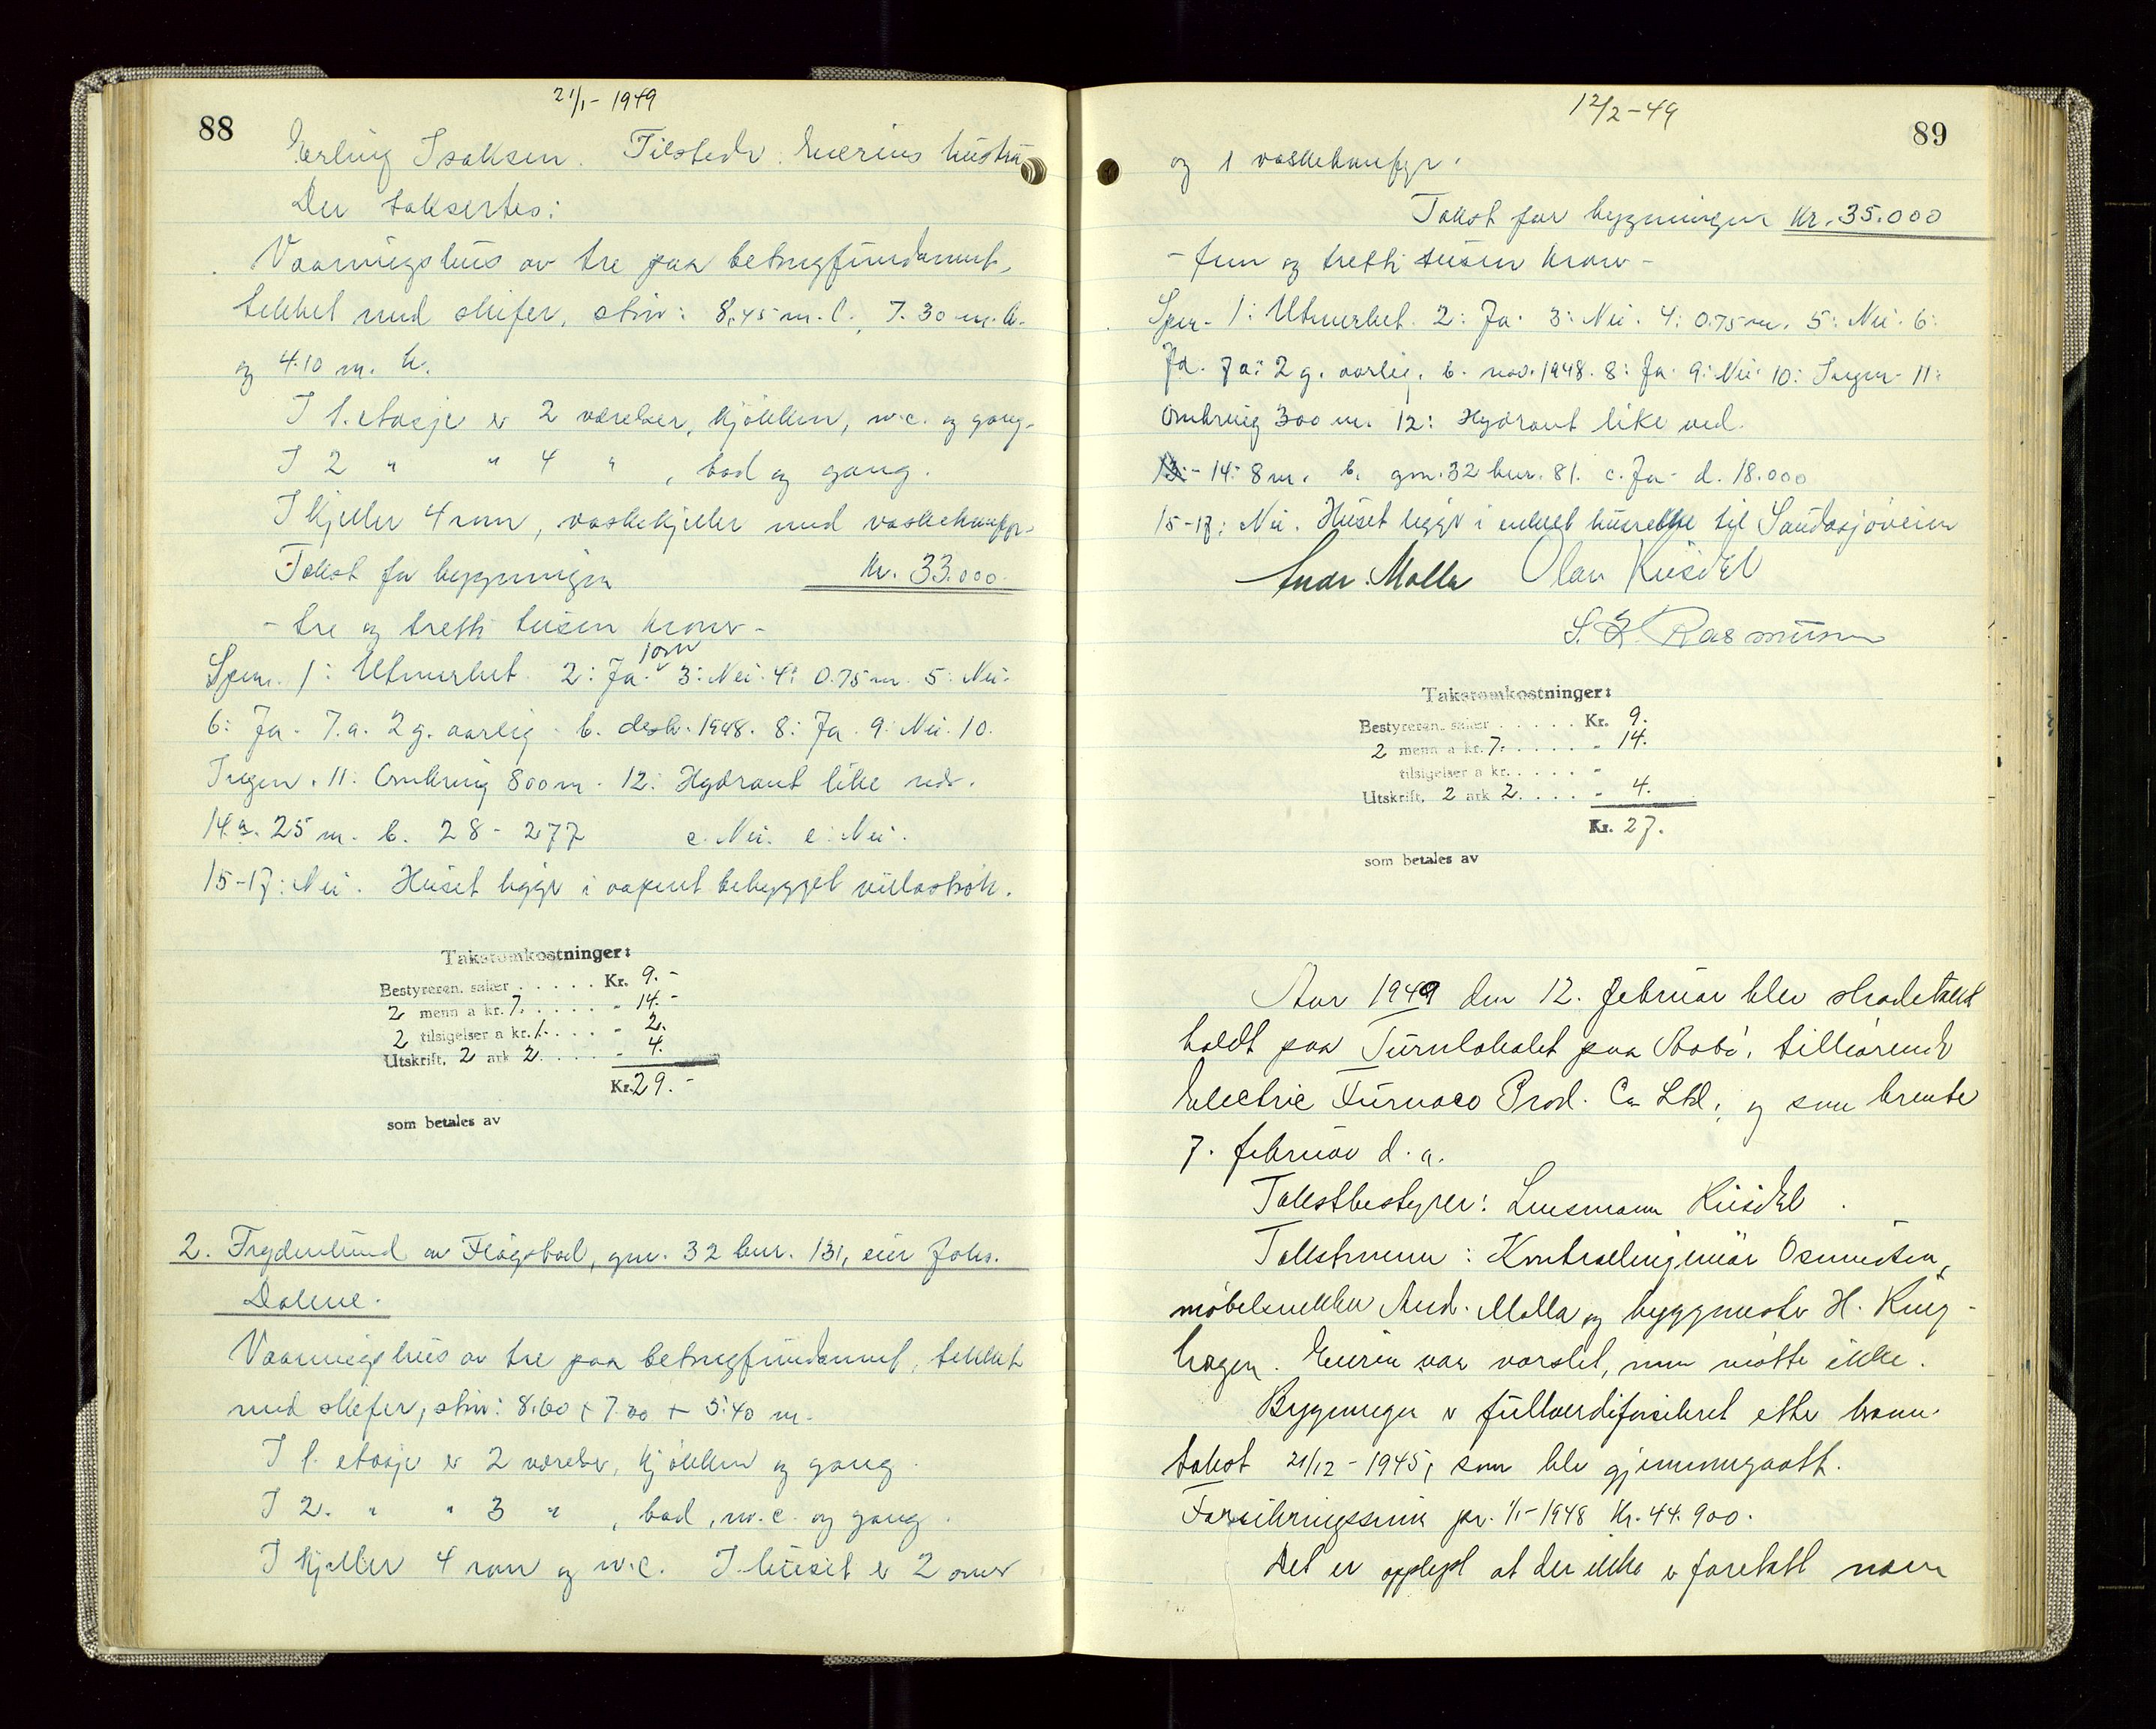 21/1 - 1949
88
Erling Isaksen. Tilstede: Eierens hustru
Der takseres:
Vaaningshus av tre paa betongfundament,
tekket med skifer, størr: 8,45 m. l., 7.30 m. br.
og 4.10 m. h.
I 1. etasje er 2 værelser, kjøkken, w.c. og gang.
I 2 " " 4 " , bad og gang.
I kjeller 4 rum, vaskekjeller med vaskekumfyr.
Takst for bygningen kr. 33.000.
- tre og tretti tusen kroner -
jorn
Spm. 1: Utmerket. 2: Ja. 3: Nei. 4: 0.75 m. 5: Nei.
6: Ja. 7.a. 2 g. aarlig. b. desbr. 1948. 8: Ja. 9: Nei. 10.
Ingen. 11: Omkring 800 m. 12: Hydrant like ved.
14.a. 25 m. b. 28 - 277 c. Nei. e: Nei.
15-17: Nei. Huset ligger i aapent bebygget villastrøk.
Takstomkostninger:
Bestyreren, salær ..... Kr. 9.-
2 menn a kr. 7. ..... - 14.-
2 tilsigelser a kr. 1. ..... - 2.
Utskrift, 2 ark 2 ..... - 4.
Kr. 29.-
som betales av
2. Frydenlund av Flagstad, gnr. 32 bnr. 131, eier Johs.
Dalene.
Vaaningshus av tre paa betongfundament, tekket
med skifer, størr: 8.60 + 7.00 + 5.40 m.
I 1. etasje er 2 værelser, kjøkken og gang.
I 2. " " 3 " , bad, w.c. og gang.
I kjeller 4 rom og w.c. I huset er 2 ovner
12/2 - 49
89
og 1 vaskekumfyr.
Takst for bygningen kr. 35.000
- fem og tretti tusen kroner -
Spm. 1: Utmerket. 2: Ja. 3: Nei. 4: 0.75 m. 5: Nei. 6:
Ja. 7a: 2 g. aarlig. b. nov. 1948. 8: Ja. 9: Nei. 10: Ingen. 11:
Omkring 300 m. 12: Hydrant like ved.
13: - 14: 8 m. b. gnr. 32 bnr. 81. c. Ja. d. 18.000
15-17: Nei. Huset ligger i enkel husrekke til Saudasjøveien
Andr. Molla Olav Riisdal
S. E. Rasmussen
Takstomkostninger:
Bestyreren, salær ..... Kr. 9.
2 menn a kr. 7. ..... - 14.
tilsigelser a kr. ..... -
Utskrift, 2 ark 2. ..... - 4.
Kr. 27.
som betales av
Aar 1949 den 12. februar blev skadetakst
holdt paa Turnlokalet paa Aabø, tilhørende
Electric Furnace Prod. Co Ltd, og som brente
7. februar d. a.
Takstbestyrer: Lensmann Riisdal.
Takstmenn: Kontrollingeniør Osmundsen,
møbelsnekker And. Molla og byggmester H. Ring-
hagen. Eieren var varslet, men møtte ikke.
Bygningen er fullverdiforsikret etter brann-
takst 21/12 - 1945, som ble gjennemgaatt.
Forsikringssum pr. 1/1 - 1948 kr. 44.900.
Det er opplyst at der ikke er foretatt noen